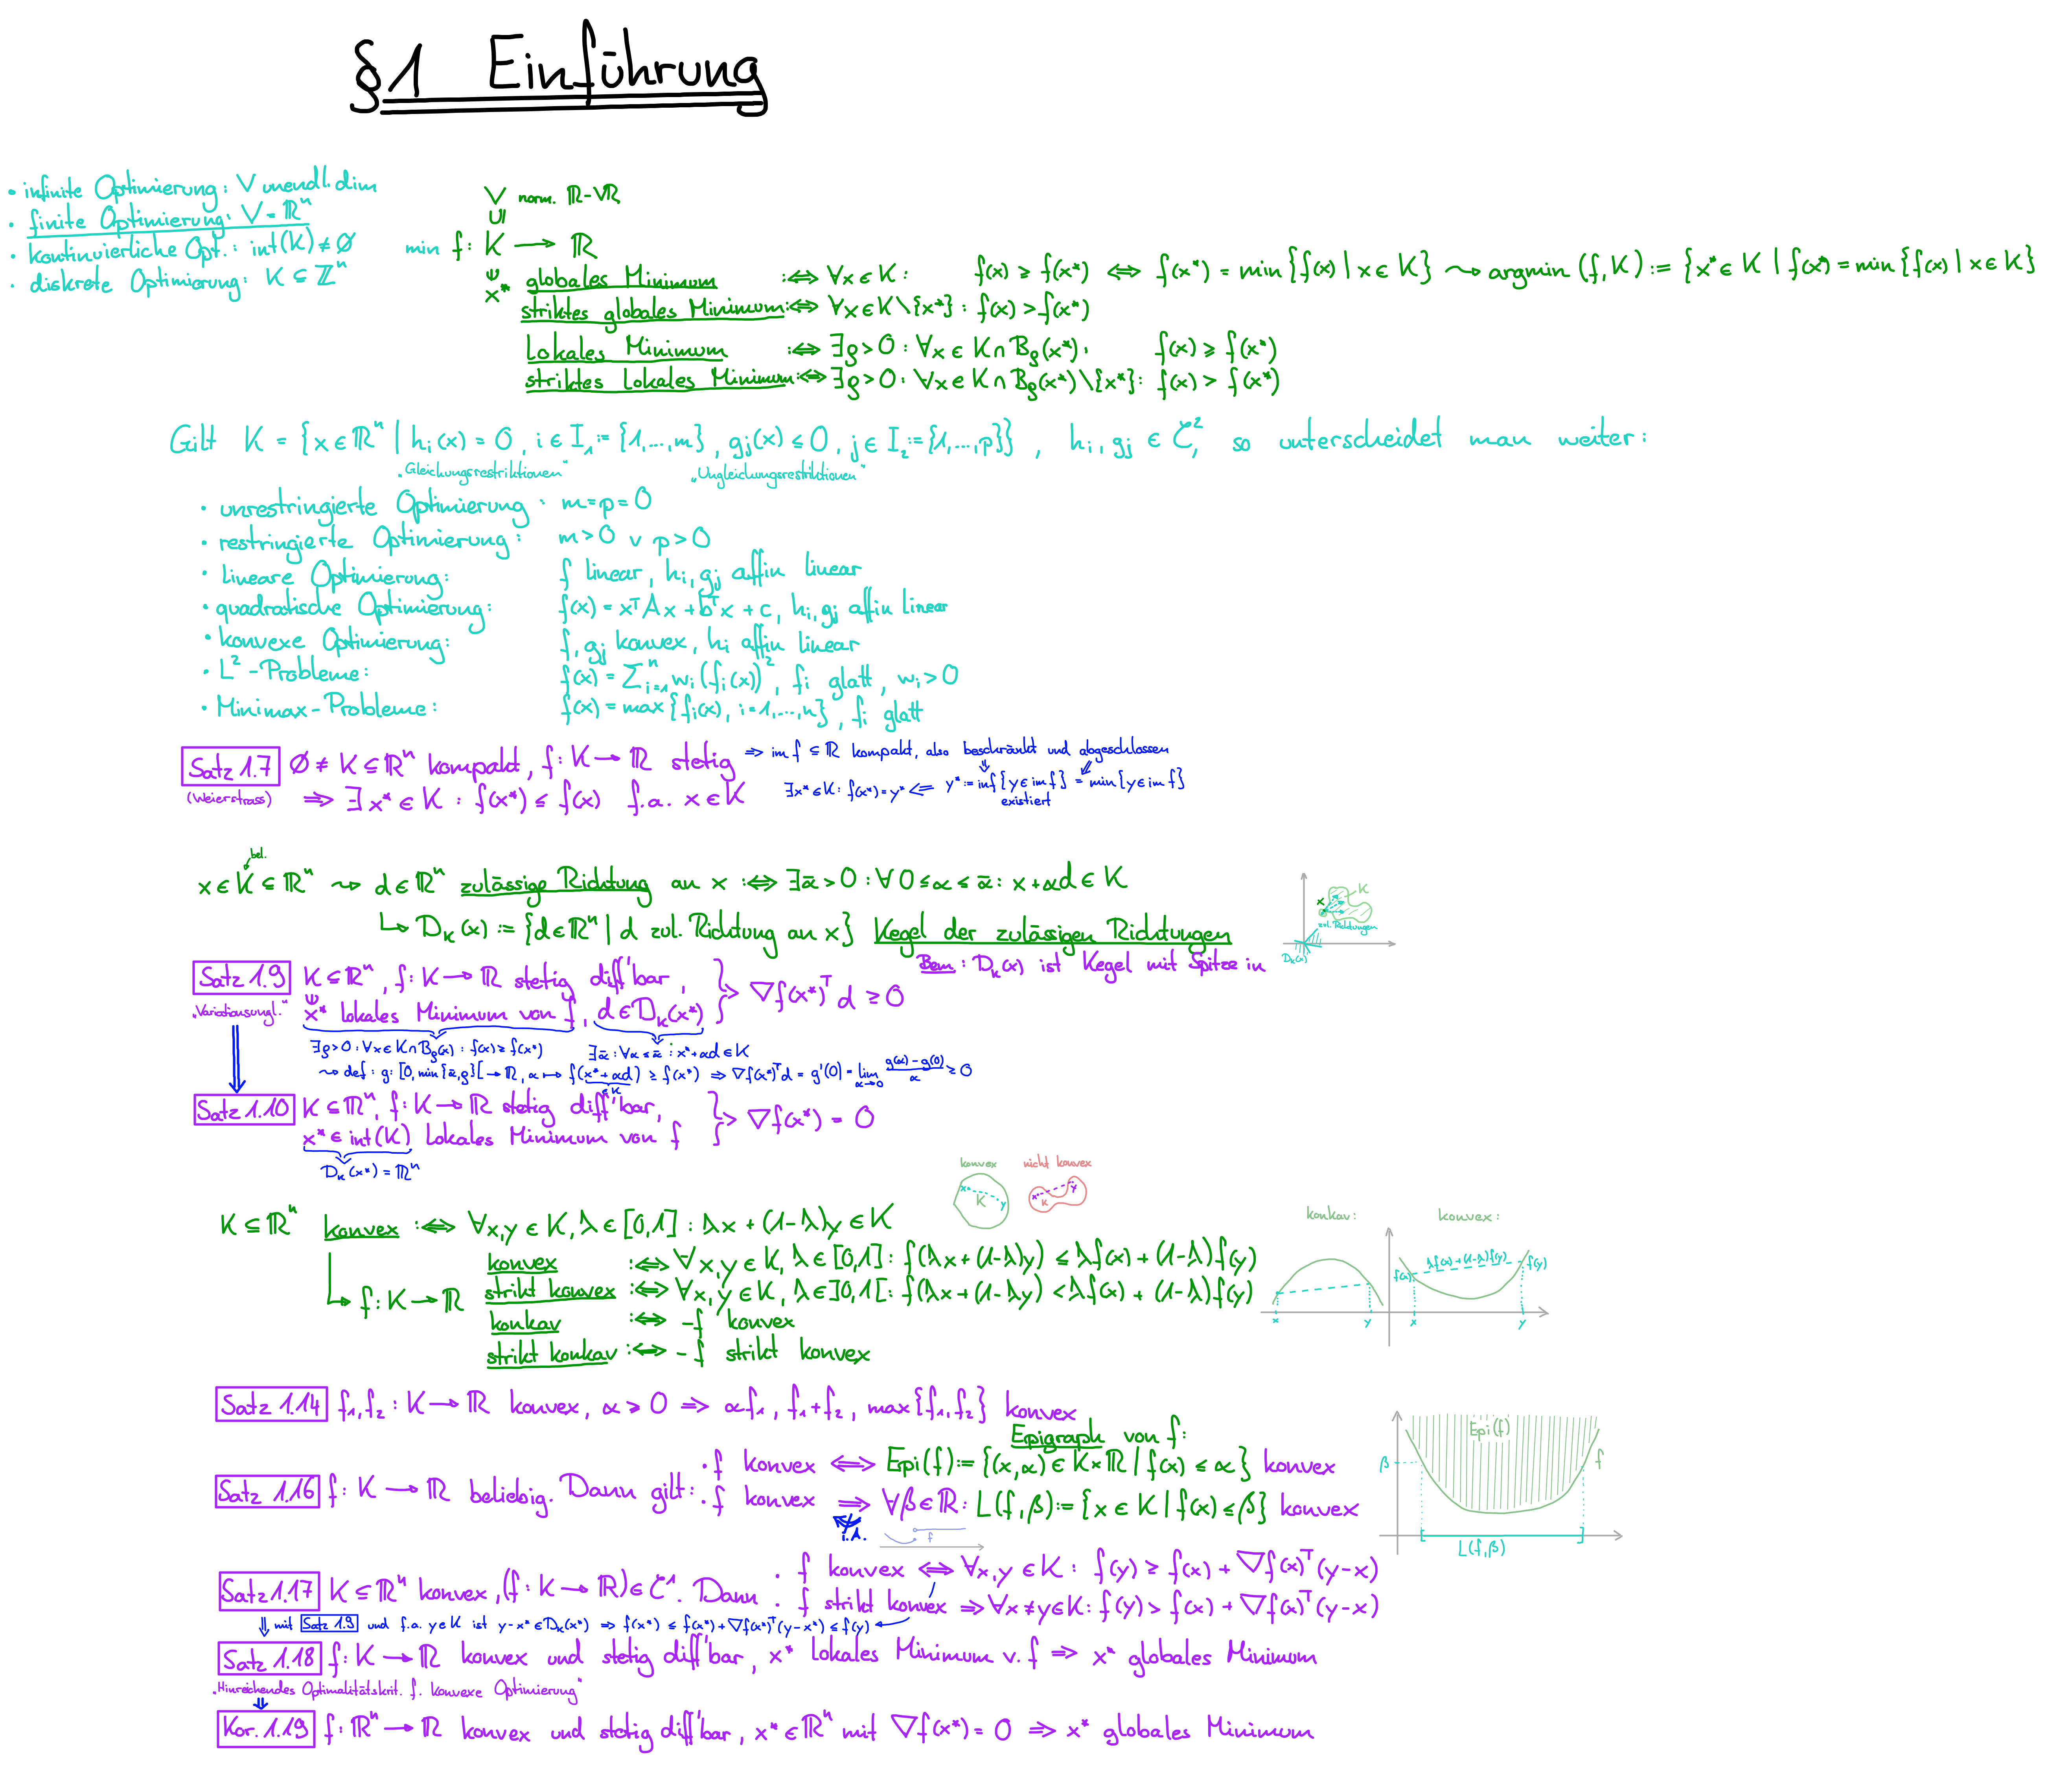 §1 Einführung
• infinite Optimierung: V unendl. dim
• finite Optimierung: V = ℝⁿ
• kontinuierliche Opt.: int(K) ≠ ∅
• diskrete Optimierung: K ⊆ ℤⁿ
V norm. ℝ-VR
∪|
min f: K → ℝ
x* globales Minimum :⇔ ∀x ∈ K: f(x) ≥ f(x*) ⇔ f(x*) = min{f(x) | x ∈ K} ⇝ argmin (f,K) := {x* ∈ K | f(x*) = min{f(x) | x ∈ K}
striktes globales Minimum :⇔ ∀x ∈ K\{x*}: f(x) > f(x*)
Lokales Minimum :⇔ ∃ρ > 0 : ∀x ∈ K ∩ B_ρ(x*): f(x) ≥ f(x*)
striktes Lokales Minimum :⇔ ∃ρ > 0 : ∀x ∈ K ∩ B_ρ(x*)\{x*}: f(x) > f(x*)
Gilt K = {x ∈ ℝⁿ | h_i(x) = 0, i ∈ I₁ := {1,...,m}, g_j(x) ≤ 0, j ∈ I₂ := {1,...,p}}, h_i, g_j ∈ C², so unterscheidet man weiter:
„Gleichungsrestriktionen“ „Ungleichungsrestriktionen“
• unrestringierte Optimierung: m = p = 0
• restringierte Optimierung: m > 0 ∨ p > 0
• lineare Optimierung: f linear, h_i, g_j affin linear
• quadratische Optimierung: f(x) = xᵀAx + bᵀx + c, h_i, g_j affin linear
• konvexe Optimierung: f, g_j konvex, h_i affin linear
• L²-Probleme: f(x) = Σⁿ_{i=1} w_i (f_i(x))², f_i glatt, w_i > 0
• Minimax-Probleme: f(x) = max{f_i(x), i = 1,...,n}, f_i glatt
Satz 1.7 ∅ ≠ K ⊆ ℝⁿ kompakt, f: K → ℝ stetig ⇒ im f ⊆ ℝ kompakt, also beschränkt und abgeschlossen
(Weierstrass) ⇒ ∃ x* ∈ K : f(x*) ≤ f(x) f.a. x ∈ K ∃x* ∈ K: f(x*) = y* ⇐ y* := inf{y ∈ im f} = min{y ∈ im f}
existiert
bel.
x ∈ K ⊆ ℝⁿ ⇝ d ∈ ℝⁿ zulässige Richtung an x :⇔ ∃ᾱ > 0 : ∀ 0 ≤ α ≤ ᾱ : x + αd ∈ K
↳ D_K(x) := {d ∈ ℝⁿ | d zul. Richtung an x} Kegel der zulässigen Richtungen
K
x
zul. Richtungen
D_K(x)
Bem: D_K(x) ist Kegel mit Spitze in
Satz 1.9 K ⊆ ℝⁿ, f: K → ℝ stetig diff'bar,
„Variationsungl.“ x* lokales Minimum von f, d ∈ D_K(x*) } ⇒ ∇f(x*)ᵀ d ≥ 0
∃ρ > 0 : ∀x ∈ K ∩ B_ρ(x) : f(x) ≥ f(x*) ∃ᾱ : ∀α ≤ ᾱ : x* + αd ∈ K
⇝ def: g: [0, min{ᾱ,ρ}[ → ℝ, α ↦ f(x* + αd) ≥ f(x*) ⇒ ∇f(x*)ᵀd = g'(0) = lim_{α→0} (g(α) − g(0))/α ≥ 0
∈ K
Satz 1.10 K ⊆ ℝⁿ, f: K → ℝ stetig diff'bar,
x* ∈ int(K) Lokales Minimum von f } ⇒ ∇f(x*) = 0
D_K(x*) = ℝⁿ
konvex nicht konvex
x K y x K y
K ⊆ ℝⁿ konvex :⇔ ∀x,y ∈ K, λ ∈ [0,1] : λx + (1−λ)y ∈ K
konvex :⇔ ∀x,y ∈ K, λ ∈ [0,1] : f(λx + (1−λ)y) ≤ λf(x) + (1−λ)f(y)
↳ f: K → ℝ strikt konvex :⇔ ∀x,y ∈ K, λ ∈ ]0,1[ : f(λx + (1−λy) < λf(x) + (1−λ)f(y)
konkav :⇔ −f konvex
strikt konkav :⇔ −f strikt konvex
konkav: konvex:
f(x) λf(x) + (1−λ)f(y) f(y)
x y x y
Satz 1.14 f₁,f₂ : K → ℝ konvex, α ≥ 0 ⇒ αf₁, f₁+f₂, max{f₁,f₂} konvex
Epigraph von f:
Satz 1.16 f: K → ℝ beliebig. Dann gilt: • f konvex ⇔ Epi(f) := {(x,α) ∈ K×ℝ | f(x) ≤ α} konvex
• f konvex ⇒ ∀β ∈ ℝ: L(f,β) := {x ∈ K | f(x) ≤ β} konvex
i.A.
f
Epi(f)
β f
L(f,β)
Satz 1.17 K ⊆ ℝⁿ konvex, (f: K → ℝ) ∈ C¹. Dann • f konvex ⇔ ∀x,y ∈ K: f(y) ≥ f(x) + ∇f(x)ᵀ(y−x)
• f strikt konvex ⇒ ∀x≠y ∈ K: f(y) > f(x) + ∇f(x)ᵀ(y−x)
⇓ mit Satz 1.9 und f.a. y ∈ K ist y−x* ∈ D_K(x*) ⇒ f(x*) ≤ f(x*) + ∇f(x*)ᵀ(y−x*) ≤ f(y)
Satz 1.18 f: K → ℝ konvex und stetig diff'bar, x* lokales Minimum v. f ⇒ x* globales Minimum
„Hinreichendes Optimalitätskrit. f. konvexe Optimierung“
Kor. 1.19 f: ℝⁿ → ℝ konvex und stetig diff'bar, x* ∈ ℝⁿ mit ∇f(x*) = 0 ⇒ x* globales Minimum